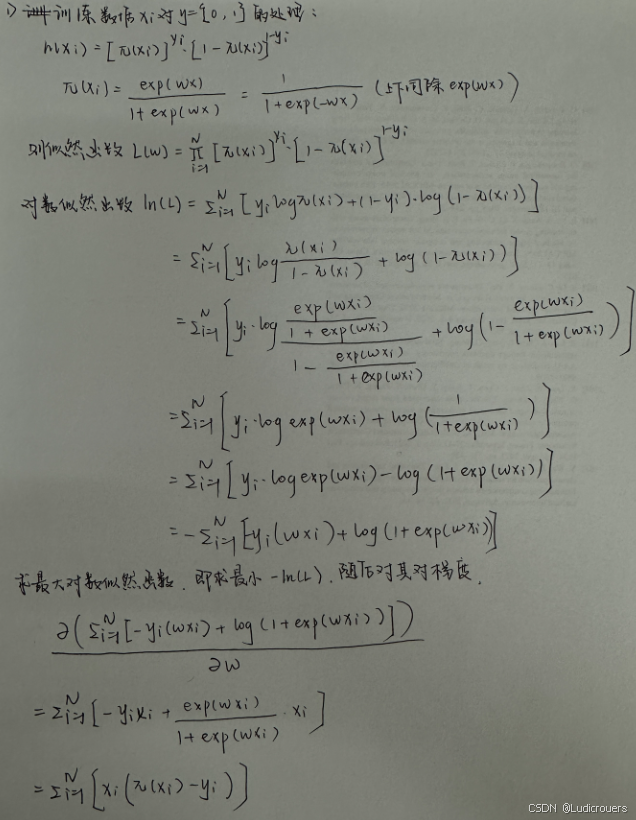 1) 训练数据xi对y={0,1}的处理:
h(xi) = [π(xi)]^yi · [1-π(xi)]^1-yi
π(xi) = exp(wx) / (1+exp(wx)) = 1 / (1+exp(-wx)) (上下同除exp(wx))
则似然函数 L(w) = ∏_{i=1}^N [π(xi)]^yi · [1-π(xi)]^1-yi
对数似然函数 ln(L) = Σ_{i=1}^N [yi logπ(xi)+(1-yi)·log(1-π(xi))]
= Σ_{i=1}^N [yi log π(xi) / (1-π(xi)) + log(1-π(xi))]
= Σ_{i=1}^N [yi·log (exp(wxi) / (1+exp(wxi))) / (1 - exp(wxi) / (1+exp(wxi))) + log(1 - exp(wxi) / (1+exp(wxi)))]
= Σ_{i=1}^N [yi·log exp(wxi) + log(1 / (1+exp(wxi)))]
= Σ_{i=1}^N [yi·log exp(wxi) - log(1+exp(wxi))]
= -Σ_{i=1}^N [yi(wxi) + log(1+exp(wxi))]
求最大对数似然函数, 即求最小 -ln(L), 随后对其对梯度.
∂(Σ_{i=1}^N [-yi(wxi) + log(1+exp(wxi))]) / ∂w
= Σ_{i=1}^N [-yixi + exp(wxi) / (1+exp(wxi)) · xi]
= Σ_{i=1}^N [xi(π(xi)-yi)]
CSDN @Ludicrouers